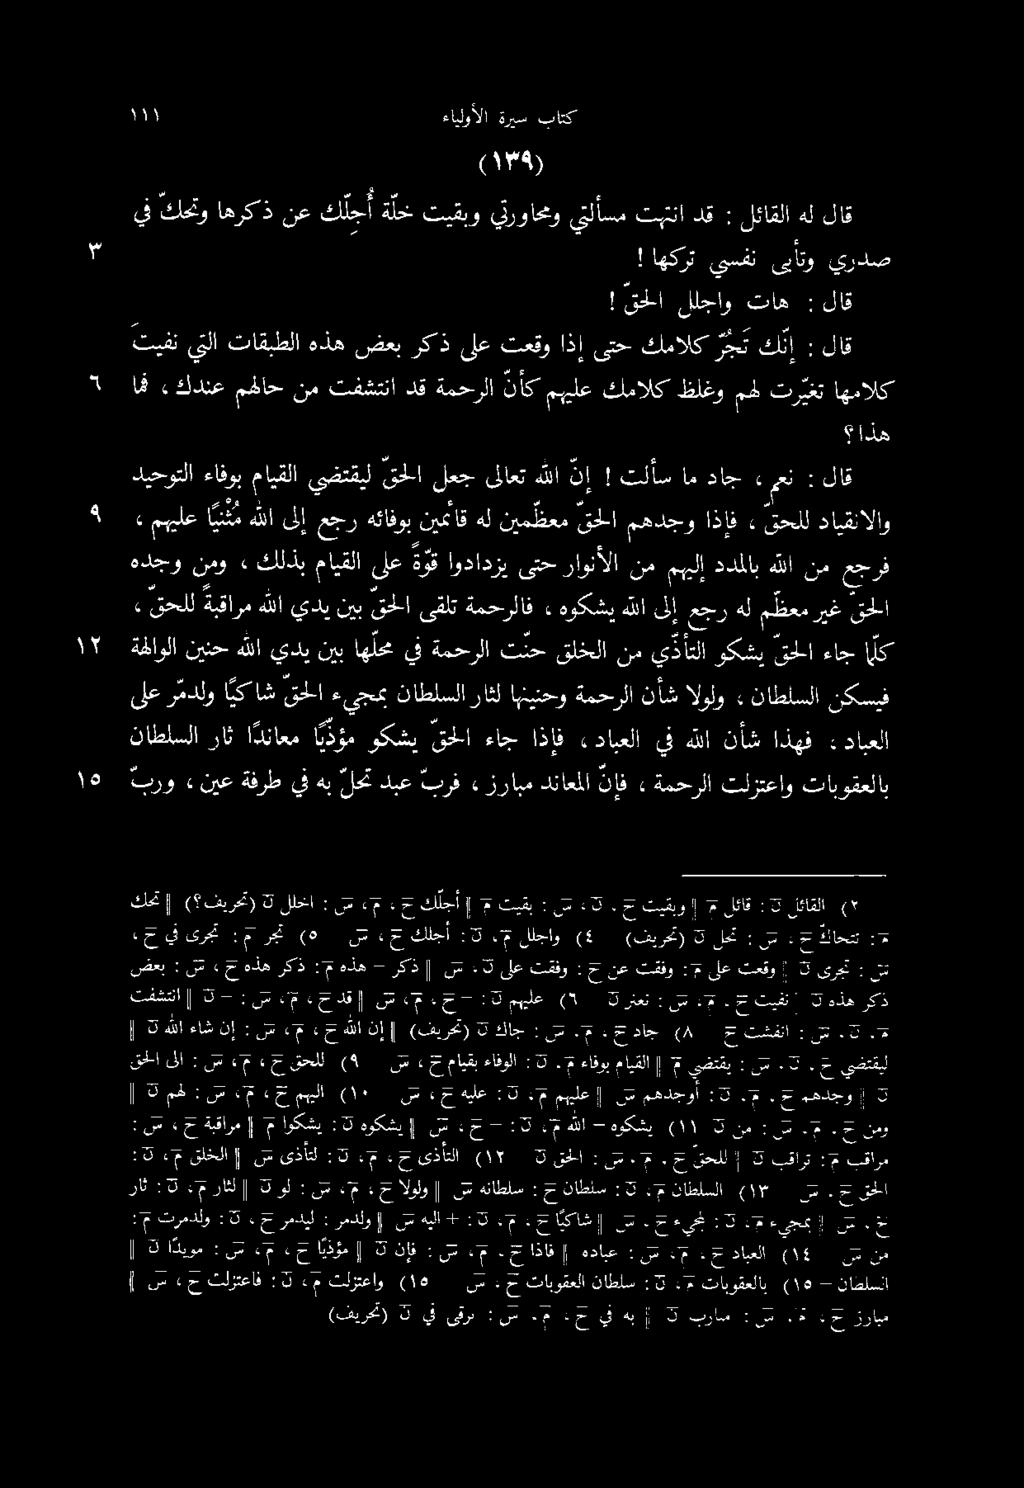 كتاب سيرة الأولياء ١١١
(١٣٩)
قال له القائل : قد انتهت مسألتي ومحاورتي وبقيت خلّة أُجِلّك عن ذكرها وتحكّ في
صدري وتأبى نفسي تركها ! ٣
قال : هات واجلل الحقّ !
قال : إنّك تَجُرّ كلامك حتى إذا وقعت على ذكر بعض هذه الطبقات التي نفيتَ
كلامها تغيّرت لهم وغلظ كلامك عليهم كأنّ الرحمة قد انتشفت من حالهم عندك ، فما ٦
هذا ؟
قال : نعم ، جاد ما سألت ! إنّ الله تعالى جعل الحقّ ليقتضي القيام بوفاء التوحيد
والانقياد للحقّ ، فإذا وجدهم الحقّ معظّمين له قائمين بوفائه رجع إلى الله مُثْنِيًا عليهم ، ٩
فرجع من الله بالمدد إليهم من الأنوار حتى يزدادوا قوّةً على القيام بذلك ، ومن وجده
الحقّ غير معظّم له رجع إلى الله يشكوه ، فالرحمة تلقى الحقّ بين يدي الله مراقبةً للحقّ ،
كلّما جاء الحقّ يشكو من الخلق التأذّي حنّت الرحمة في محلّها بين يدي الله حنين الوالهة ١٢
فيسكن السلطان ، ولولا شأن الرحمة وحنينها لثار السلطان بمجيء الحقّ شاكيًا ولدمّر على
العباد ، فهذا شأن الله في العباد ، فإذا جاء الحقّ يشكو مؤذّيًا معاندًا ثار السلطان
بالعقوبات واعتزلت الرحمة ، فإنّ المعاند مبارز ، فربّ عبد تحلّ به في طرفة عين ، وربّ ١٥
٢) القائل ن : قائل م ‖ وبقيت ح ، ن ، س : بقيت م ‖ أجلّك ح ، م ، س : اخلل ن (تحريف ؟) ‖ تحك
م : تتحاكّ ح ، س : تحل ن (تحريف) ٤) واجلل م ، ن : أجلك ح ، س ٥) تجر م : تجرى في ح ،
س : تجرى ن ‖ وقعت على م : وقفت عن ح : وقفت على ن ، س ‖ ذكر – هذه م : ذكر هذه ح ، س : بعض
ذكر هذه ن ‖ نفيت ح ، م ، س : ن ٦) عليهم ن : – ح ، م ، س ‖ قد ح ، م ، س : – ن ‖ انتشفت
م ، ن ، س : انفشت ح ٨) جاد ح ، م ، س : كاد ن (تحريف) ‖ إن الله ح ، م ، س : إن شاء الله ن ‖
ليقتضي ح ، ن ، س : يقتضي م ‖ القيام بوفاء م ، ن : الوفاء بقيام ح ، س ٩) للحق ح ، م ، س : الى الحق
ن ‖ وجدهم ح ، م ، ن : أوجدهم س ‖ عليهم م ، ن : عليه ح ، س ١٠) اليهم ح ، م ، س : لهم ن ‖
ومن ح ، م ، س : من ن ١١) يشكوه – الله م ، ن : – ح ، س ‖ يشكوه ن : يشكوا م ‖ مراقبة ح ، س :
مراقب م : تراقب ن ‖ للحقّ ح ، م ، س : الحق ن ١٢) التأذى ح ، م ، ن : لتأذى س ‖ الخلق م ، ن :
الحق ح ، س ١٣) السلطان م ، ن : سلطان ح : سلطانه س ‖ ولولا ح ، م ، س : لو ن ‖ لثار م ، ن : ثار
ح ، س ‖ بمجيء م ، ن : لمجيء ح ، س ‖ شاكيًا ح ، م ، ن : + اليه س ‖ ولدمر : ليدمر ح ، ن : ولدمرت م :
من س ١٤) العباد ح ، م ، س : عباده ن ‖ فاذا ح ، م ، س : فإن ن ‖ مؤذيًا ح ، م ، س : مويدًا ن ‖
السلطان – ١٥) بالعقوبات م ، ن : سلطان العقوبات ح ، س ١٥) واعتزلت م ، ن : فاعتزلت ح ، س ‖
مبارز ح ، م ، س : مبارب ن ‖ به في ح ، م ، س : يرقى في ن (تحريف)